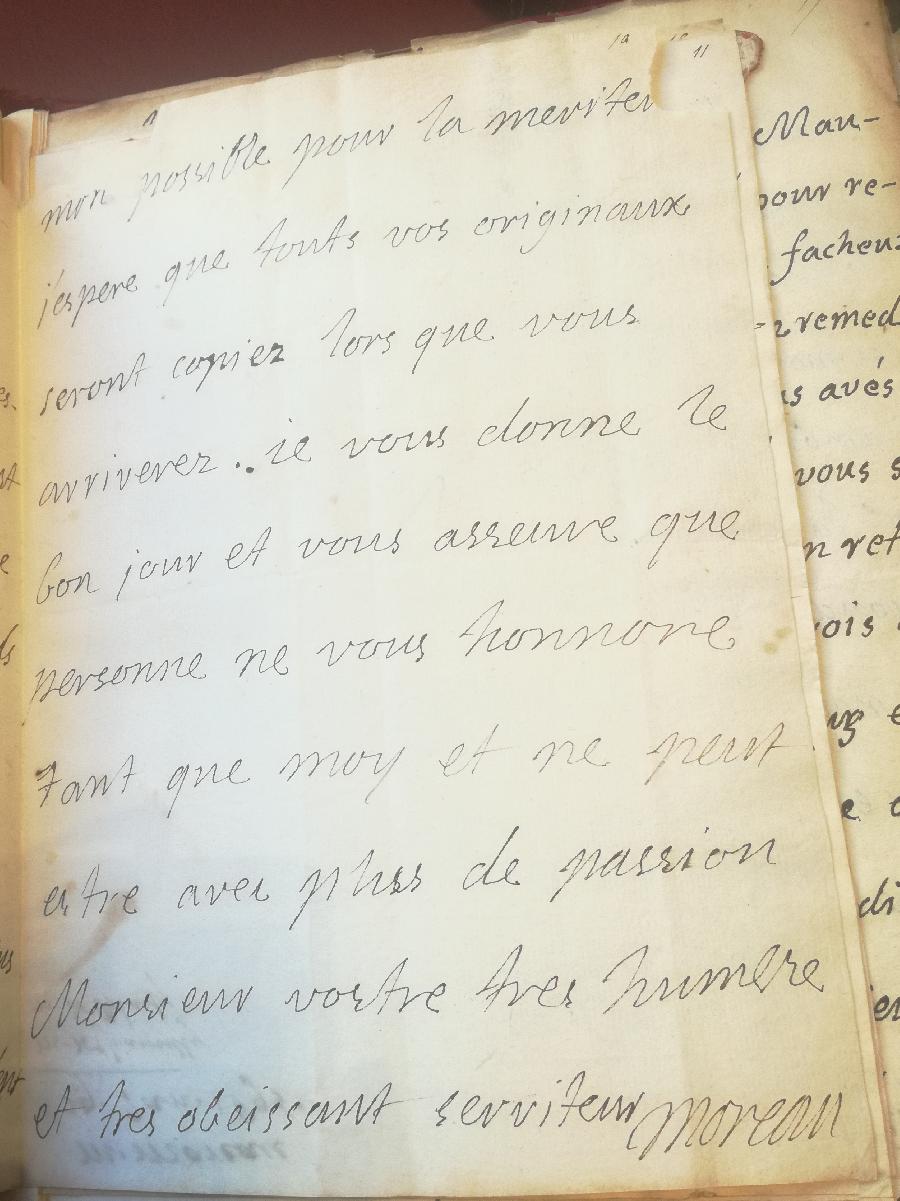 11
mon possible pour la meriter
j'espere que touts vos originaux
seront copiez lors que vous
arriverez. ie vous donne le
bon jour et vous asseure que
personne ne vous honnore
tant que moy et ne peut
estre avec pluss de passion
Monsieur vostre tres humble
et tres obeissant serviteur Moreau
Mau-
pour re-
facheux
remed
avés
vous s
n ret
ois